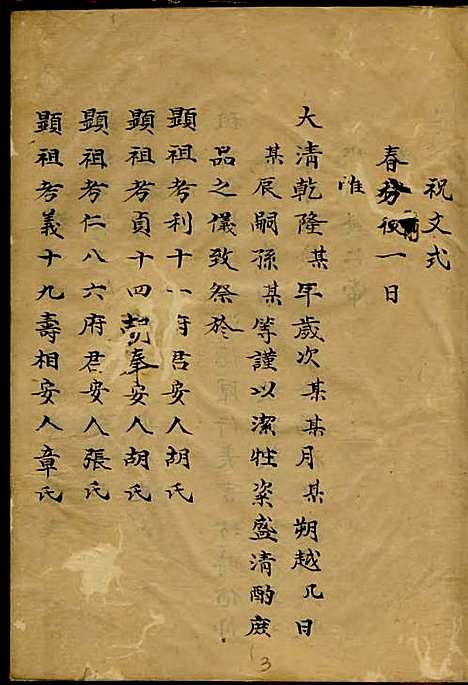 祝文式
春分後一日
前
惟
大清乾隆某年歲次某某月某朔越几日
某辰嗣孫某等謹以潔牲粢盛清酌庶
品之儀致祭於
顯祖考利十一府君安人胡氏
顯祖考貞十四朝奉安人胡氏
顯祖考仁八六府君安人張氏
顯祖考義十九壽相安人章氏
3